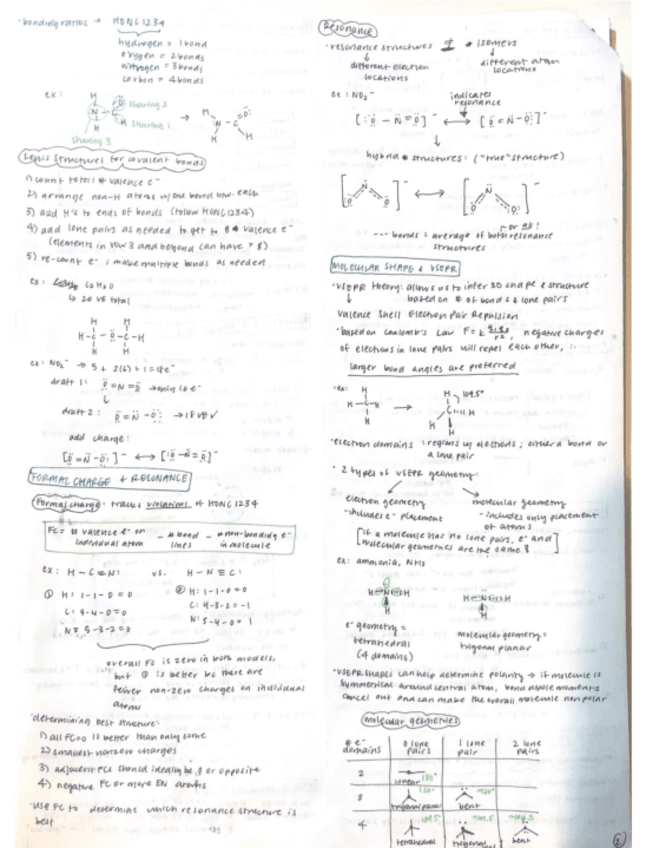 • bonding ratios → HONC 1234
hydrogen = 1 bond
oxygen = 2 bonds
nitrogen = 3 bonds
carbon = 4 bonds
ex:
sharing 2
sharing 1
sharing 3
Lewis Structures for covalent bonds
1) count total # valence e⁻
2) arrange non-H atoms w/ one bond btw. each
3) add H's to ends of bonds (follow HONC 1234)
4) add lone pairs as needed to get to 8 valence e⁻
(elements in row 3 and beyond can have > 8)
5) re-count e⁻ ; make multiple bonds as needed
ex: C₂H₆O
↳ 20 VE total
ex: NO₂⁻ → 5 + 2(6) + 1 = 18e⁻
draft 1: Ö=N=Ö → only 16e⁻
draft 2: Ö=N̈-Ö: → 18 VE ✓
add charge:
[Ö=N̈-Ö:]⁻ ⟷ [:Ö-N̈=Ö]⁻
FORMAL CHARGE & RESONANCE
Formal charge: tracks violations of HONC 1234
FC = # valence e⁻ on individual atom - # bond lines - # non-bonding e⁻ in molecule
ex: H-C≡N: vs. H-N≡C:
① H: 1-1-0=0
C: 4-4-0=0
N: 5-3-2=0
② H: 1-1-0=0
C: 4-3-2=-1
N: 5-4-0=1
overall FC is zero in both models,
but ① is better bc there are
fewer non-zero charges on individual
atoms
• determining best structure:
1) all FC=0 is better than only some
2) smallest nonzero charges
3) adjacent FCs should ideally be 0 or opposite
4) negative FC on more EN atoms
• use FC to determine which resonance structure is
best
Resonance
• resonance structures ≠ isomers
different electron locations
different atom locations
ex: NO₂⁻
indicates resonance
[:Ö-N̈=Ö]⁻ ⟷ [Ö=N̈-Ö:]⁻
hybrid structures: ("true" structure)
--- bonds = average of both resonance
structures
MOLECULAR SHAPE & VSEPR
• VSEPR theory: allows us to infer 3D shape & structure
based on # of bonds & lone pairs
Valence Shell Electron Pair Repulsion
• based on Coulomb's Law F = k q₁q₂/r², negative charges
of electrons in lone pairs will repel each other, ∴
larger bond angles are preferred
• ex:
109.5°
• electron domains: regions w/ electrons; either a bond or
a lone pair
• 2 types of VSEPR geometry:
electron geometry
- includes e⁻ placement
molecular geometry
- includes only placement
of atoms
[if a molecule has no lone pairs, e⁻ and
molecular geometries are the same]
ex: ammonia, NH₃
e⁻ geometry =
tetrahedral
(4 domains)
molecular geometry =
trigonal planar
• VSEPR shapes can help determine polarity → if molecule is
symmetrical around central atom, bond dipole moments
cancel out and can make the overall molecule nonpolar
molecular geometries
# e⁻ domains | 0 lone pairs | 1 lone pair | 2 lone pairs
2 | linear 180°
3 | trigonal planar 120° | bent
4 | tetrahedral | trigonal | bent
2